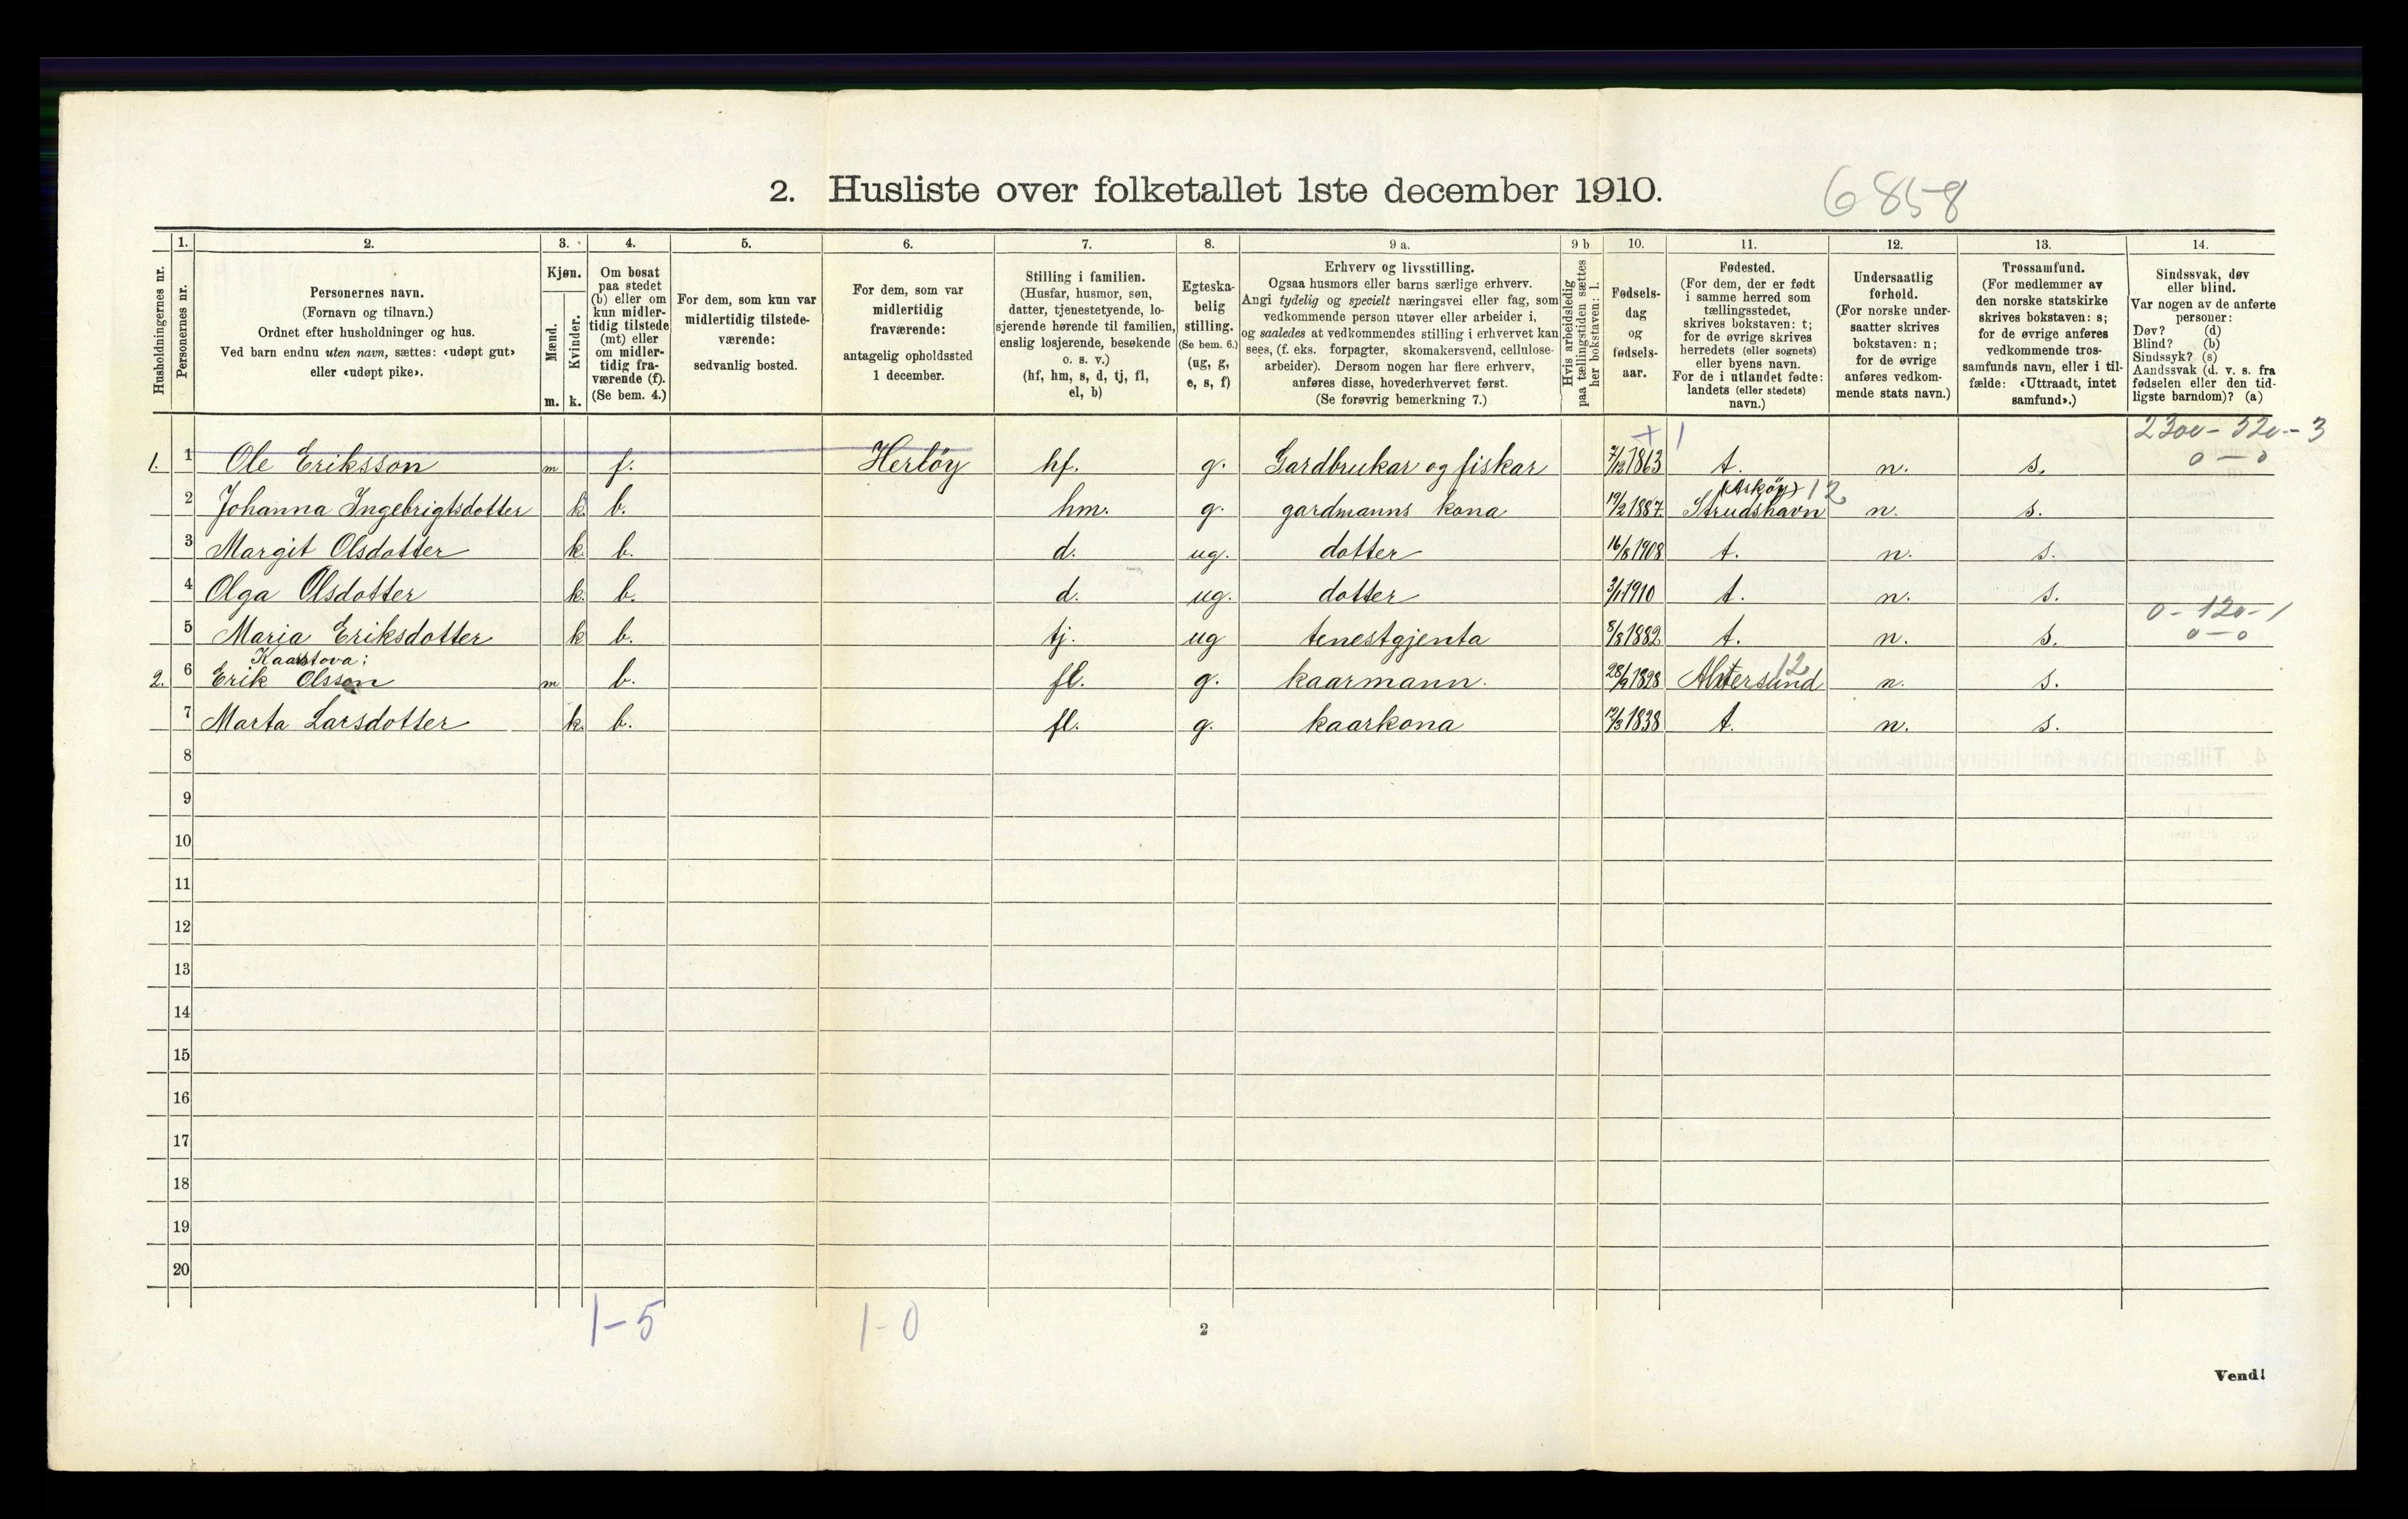 2. Husliste over folketallet 1ste december 1910.
6858
Husholdningernes nr.
1.
Personernes nr.
2.
Personernes navn.
(Fornavn og tilnavn.)
Ordnet efter husholdninger og hus.
Ved barn endnu uten navn, sættes: «udøpt gut»
eller «udøpt pike».
3.
Kjøn.
Mænd.
Kvinder.
m. k.
4.
Om bosat
paa stedet
(b) eller om
kun midler-
tidig tilstede
(mt) eller
om midler-
tidig fra-
værende (f).
(Se bem. 4.)
5.
For dem, som kun var
midlertidig tilstede-
værende:
sedvanlig bosted.
6.
For dem, som var
midlertidig
fraværende:
antagelig opholdssted
1 december.
7.
Stilling i familien.
(Husfar, husmor, søn,
datter, tjenestetyende, lo-
sjerende hørende til familien,
enslig losjerende, besøkende
o. s. v.)
(hf, hm, s, d, tj, fl,
el, b)
8.
Egteska-
belig
stilling.
(Se bem. 6.)
(ug, g,
e, s, f)
9 a.
Erhverv og livsstilling.
Ogsaa husmors eller barns særlige erhverv.
Angi tydelig og specielt næringsvei eller fag, som
vedkommende person utøver eller arbeider i,
og saaledes at vedkommendes stilling i erhvervet kan
sees, (f. eks. forpagter, skomakersvend, cellulose-
arbeider). Dersom nogen har flere erhverv,
anføres disse, hovederhvervet først.
(Se forøvrig bemerkning 7.)
9 b
Hvis arbeidsledig
paa tællingstiden sættes
her bokstaven: l.
10.
Fødsels-
dag
og
fødsels-
aar.
11.
Fødested.
(For dem, der er født
i samme herred som
tællingsstedet,
skrives bokstaven: t;
for de øvrige skrives
herredets (eller sognets)
eller byens navn.
For de i utlandet fødte:
landets (eller stedets)
navn.)
12.
Undersaatlig
forhold.
(For norske under-
saatter skrives
bokstaven: n;
for de øvrige
anføres vedkom-
mende stats navn.)
13.
Trossamfund.
(For medlemmer av
den norske statskirke
skrives bokstaven: s;
for de øvrige anføres
vedkommende tros-
samfunds navn, eller i til-
fælde: «Uttraadt, intet
samfund».)
14.
Sindssvak, døv
eller blind.
Var nogen av de anførte
personer:
Døv? (d)
Blind? (b)
Sindssyk? (s)
Aandssvak (d. v. s. fra
fødselen eller den tid-
ligste barndom)? (a)
1. 1 Ole Eriksson m f. Herløy hf. g. Gardbrukar og fiskar 7/12 1863 t. n. s.
0 — 0
(Askøy) 12
2 Johanna Ingebrigtsdotter k. b. hm. g. gardmanns kona 19/2 1887. Strudshavn n. s.
3 Margit Olsdotter k. b. d. ug. dotter 16/8 1908 t. n. s.
4 Olga Olsdotter k. b. d. ug. dotter 3/1 1910 t. n. s.
0 - 120 - 1
5 Maria Eriksdotter k b. tj. ug tenestgjenta 8/8 1882 t. n. s. 0 — 0
Kaarstova; 12
2. 6 Erik Olsson m b. fl. g. kaarmann. n. s.
7 Marta Larsdotter k. b. fl. g. kaarkona 12/3 1838 t. n. s.
8
9
10
11
12
13
14
15
16
17
18
19
20
1-5
1-0
2
Vend!